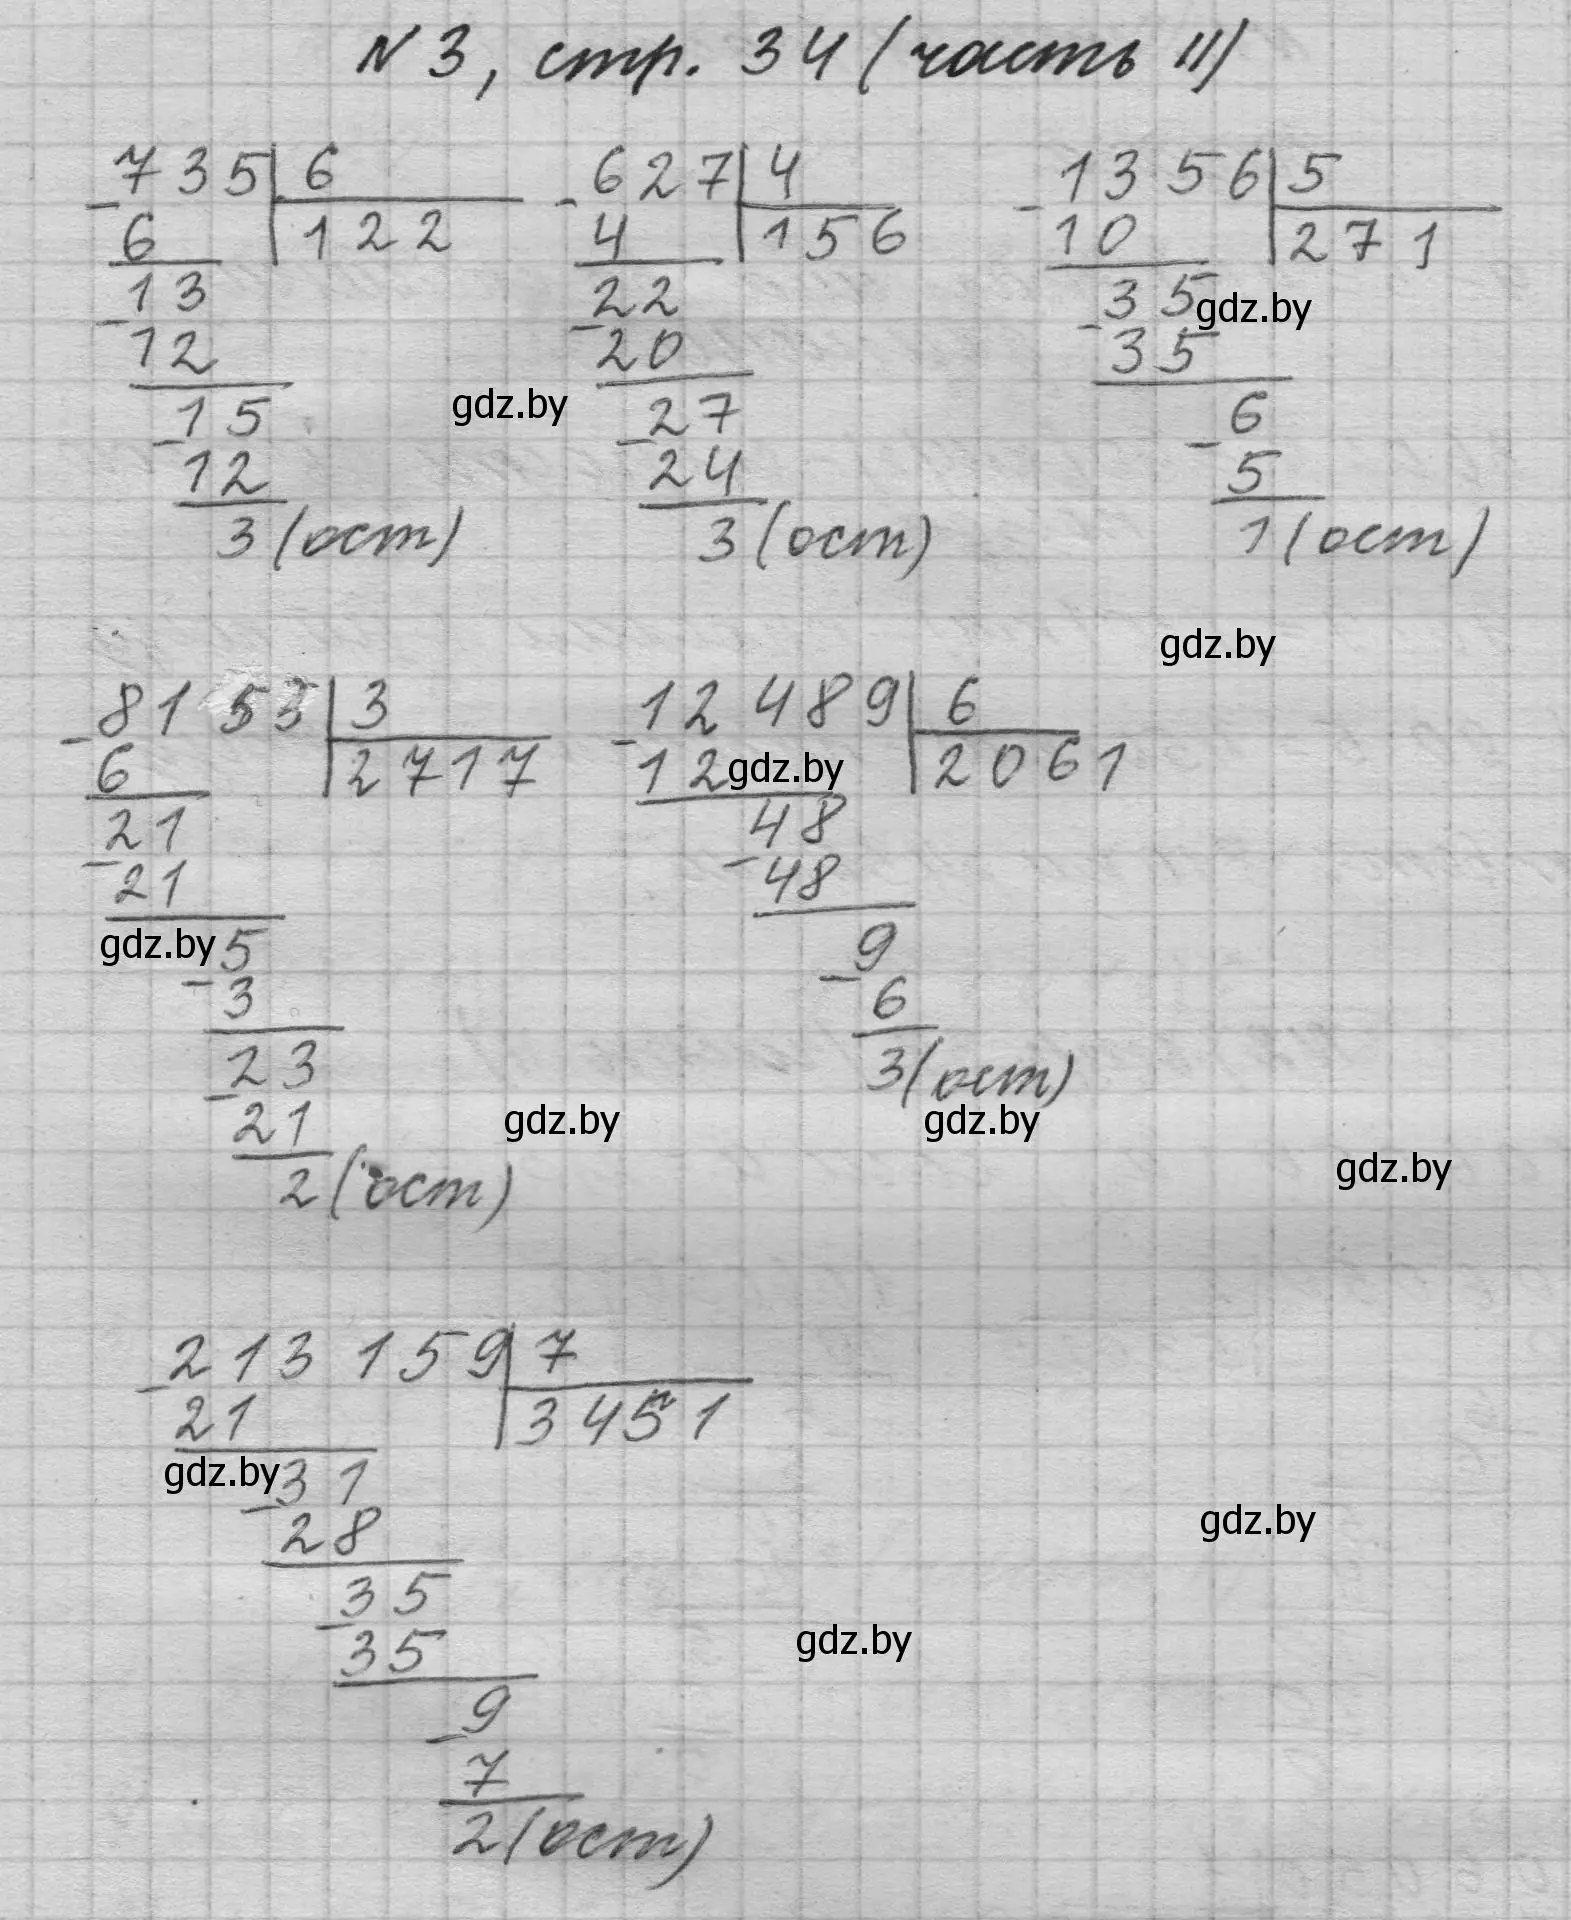 N 3, стр. 34 (часть II)
735 6 627 4 1356 5
- 6 122 - 4 156 - 10 271
13 22 35 gdz.by
- 12 - 20 - 35
15 gdz.by 27 6
- 12 - 24 - 5
3 (ост) 3 (ост) 1 (ост)
gdz.by
81 53 3 12 489 6
- 6 2717 - 12 gdz.by 2061
21 48
- 21 - 48
gdz.by 5 9
- 3 - 6
23 3 (ост)
- 21 gdz.by gdz.by
2 (ост) gdz.by
213 159 7
- 21 3451
gdz.by 31
- 28 gdz.by
35
- 35 gdz.by
9
- 7
2 (ост)